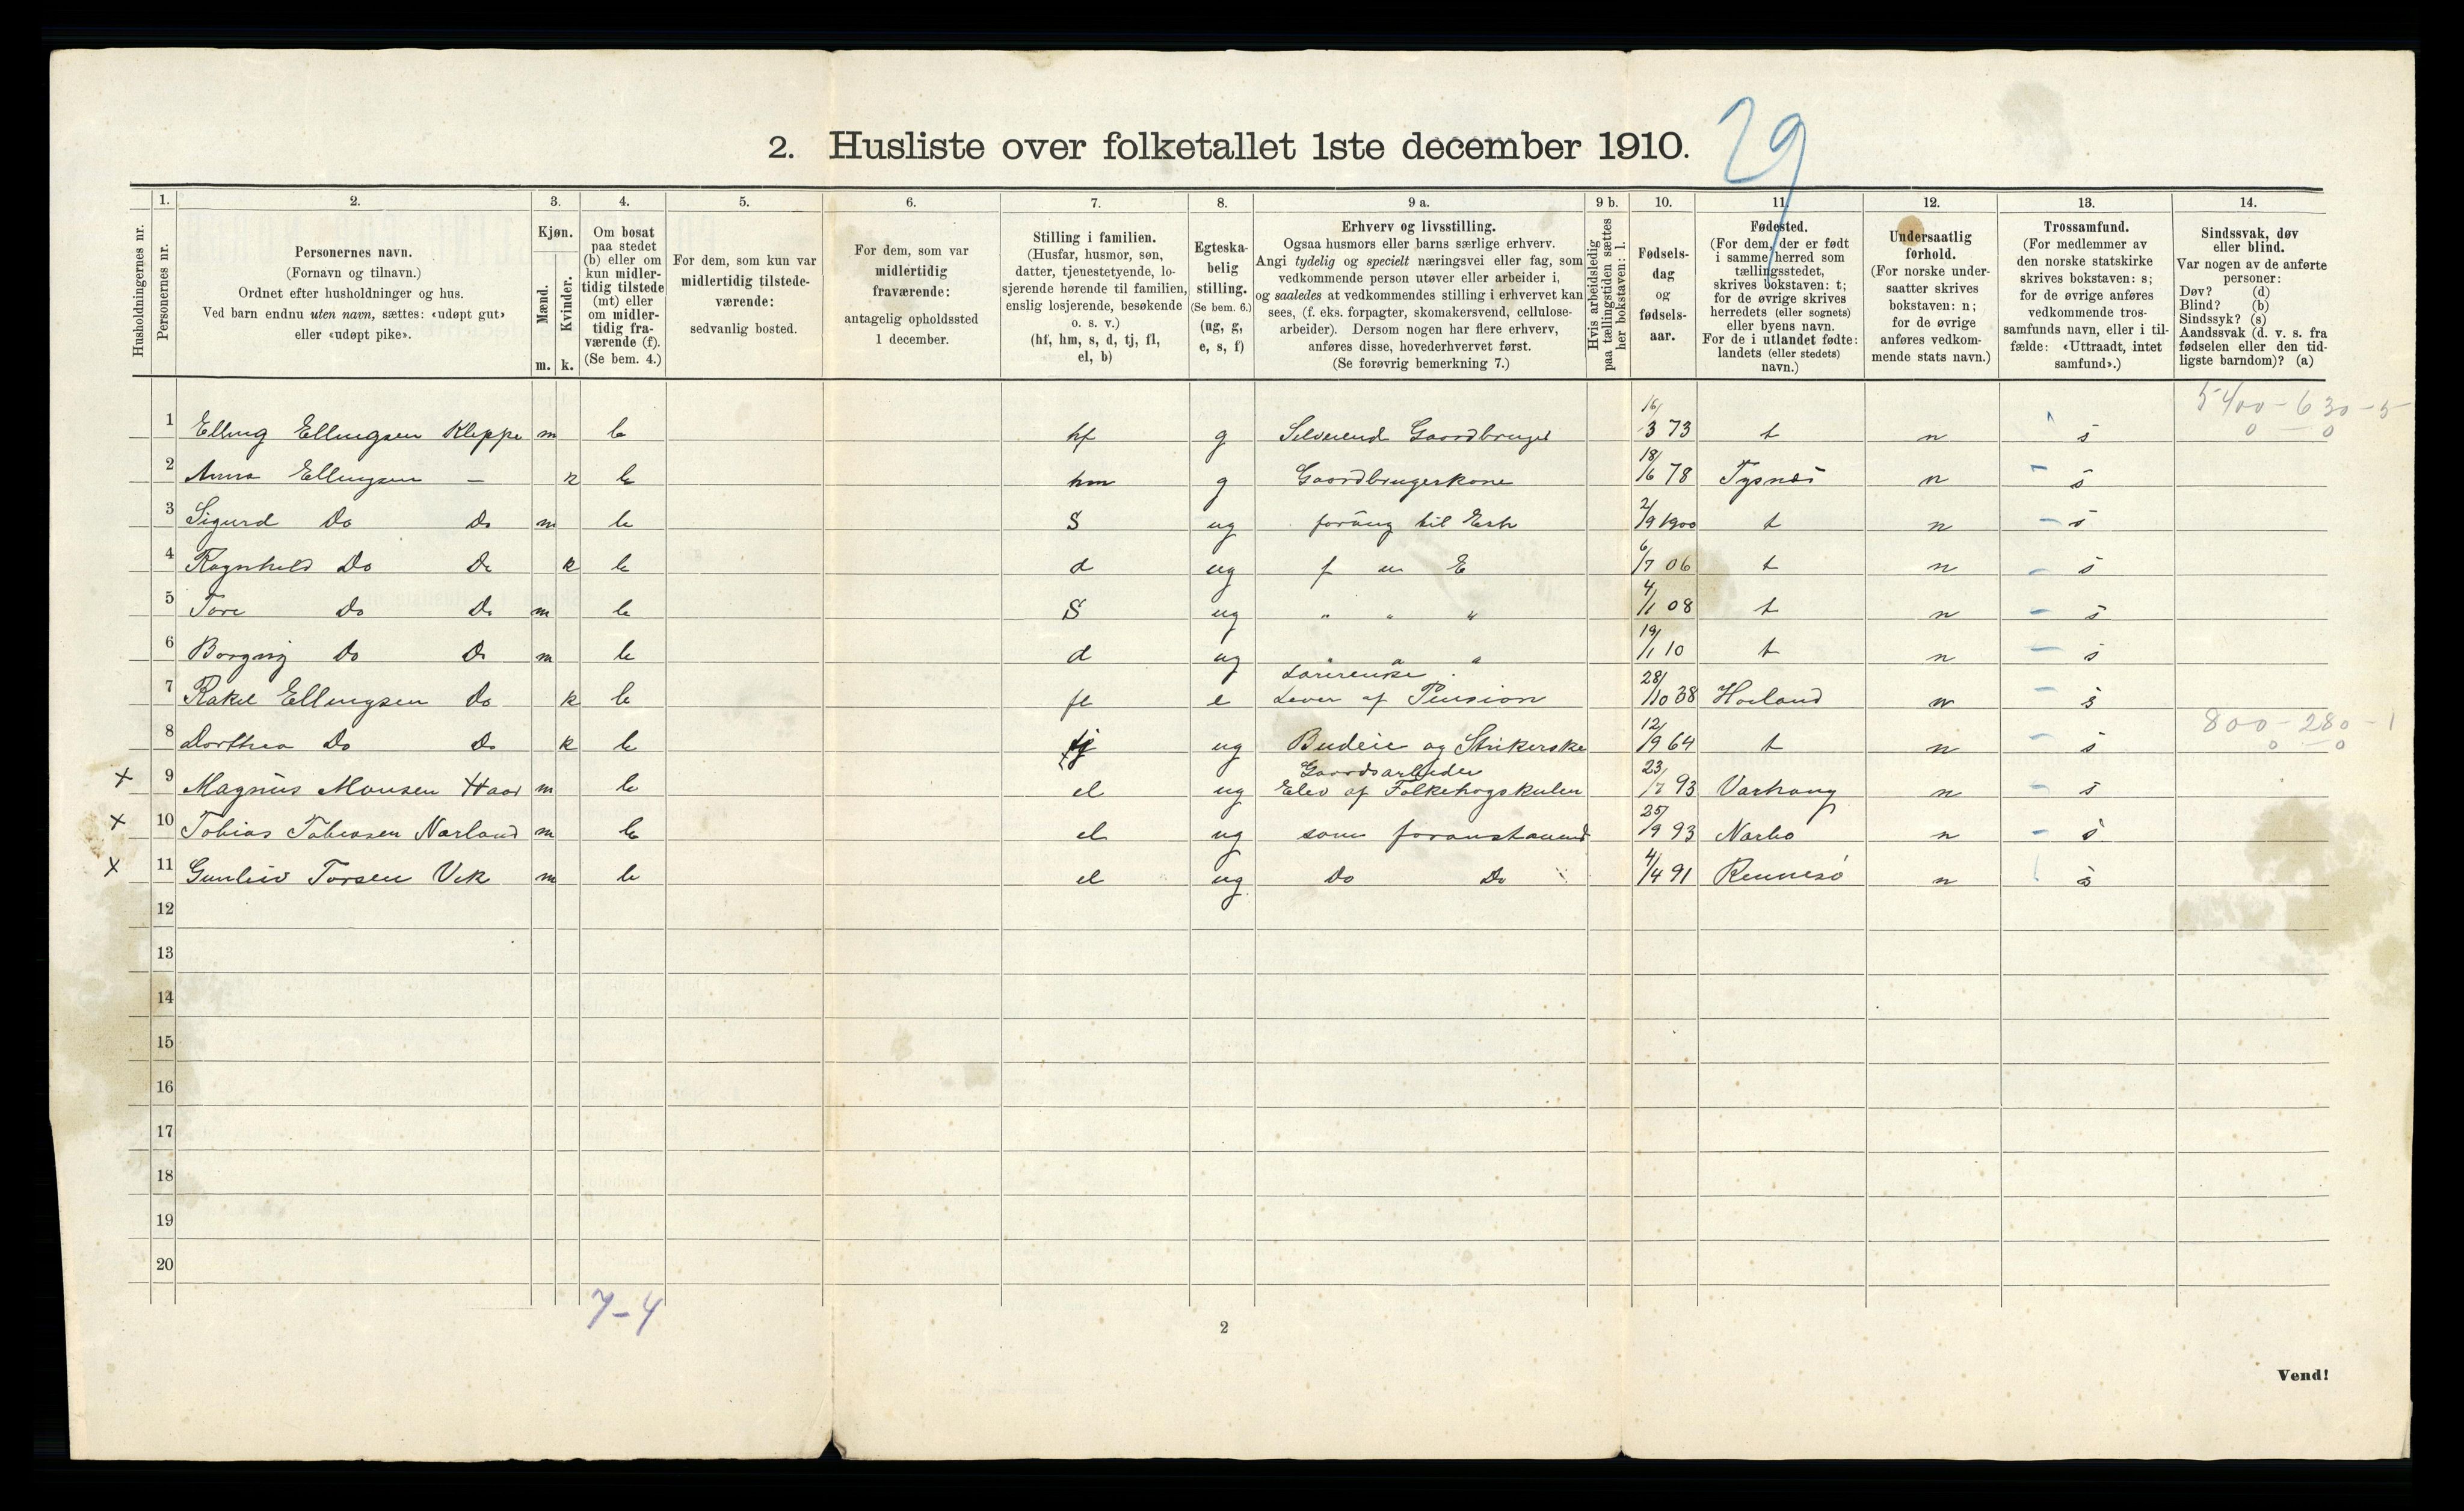 2. Husliste over folketallet 1ste december 1910. 29
1. 2. 3. 4. 5. 6. 7. 8. 9 a. 9 b. 10. 11. 12. 13. 14.
Husholdningernes nr.
Personernes nr.
Personernes navn.
(Fornavn og tilnavn.)
Ordnet efter husholdninger og hus.
Ved barn endnu uten navn, sættes: «udøpt gut»
eller «udøpt pike».
Kjøn.
Mænd.
Kvinder.
m. k.
Om bosat
paa stedet
(b) eller om
kun midler-
tidig tilstede
(mt) eller
om midler-
tidig fra-
værende (f).
(Se bem. 4.)
For dem, som kun var
midlertidig tilstede-
værende:
sedvanlig bosted.
For dem, som var
midlertidig
fraværende:
antagelig opholdssted
1 december.
Stilling i familien.
(Husfar, husmor, søn,
datter, tjenestetyende, lo-
sjerende hørende til familien,
enslig losjerende, besøkende
o. s. v.)
(hf, hm, s, d, tj, fl,
el, b)
Egteska-
belig
stilling.
(Se bem. 6.)
(ug, g,
e, s, f)
Erhverv og livsstilling.
Ogsaa husmors eller barns særlige erhverv.
Angi tydelig og specielt næringsvei eller fag, som
vedkommende person utøver eller arbeider i,
og saaledes at vedkommendes stilling i erhvervet kan
sees, (f. eks. forpagter, skomakersvend, cellulose-
arbeider). Dersom nogen har flere erhverv,
anføres disse, hovederhvervet først.
(Se forøvrig bemerkning 7.)
Hvis arbeidsledig
paa tællingstiden sættes
her bokstaven: l.
Fødsels-
dag
og
fødsels-
aar.
Fødested.
(For dem, der er født
i samme herred som
tællingsstedet,
skrives bokstaven: t;
for de øvrige skrives
herredets (eller sognets)
eller byens navn.
For de i utlandet fødte:
landets (eller stedets)
navn.)
Undersaatlig
forhold.
(For norske under-
saatter skrives
bokstaven: n;
for de øvrige
anføres vedkom-
mende stats navn.)
Trossamfund.
(For medlemmer av
den norske statskirke
skrives bokstaven: s;
for de øvrige anføres
vedkommende tros-
samfunds navn, eller i til-
fælde: «Uttraadt, intet
samfund».)
Sindssvak, døv
eller blind.
Var nogen av de anførte
personer:
Døv? (d)
Blind? (b)
Sindssyk? (s)
Aandssvak (d. v. s. fra
fødselen eller den tid-
ligste barndom)? (a)
5400 - 630 - 5
0 - 0
1 Elling Ellingsen Kleppe m b hf g Selveiend Gaardbruger 16/3 73 t n s
2 Anna Ellingsen - k b hm g Gaardbrugerkone 18/6 78 Tysnes n s
3 Sigurd Do Do m b S ug forsørg til Erh 2/9 1900 t n s
4 Ragnhild Do Do k b d ug f u E 6/7 06 t n s
5 Tore Do Do m b S ug " " " 4/1 08 t n s
6 Borgny Do Do m b d ug " " " 19/1 10 t n s
Lærerenke
7 Rakel Ellingsen Do k b fl e Lever af Pension 28/10 38 Høiland n s
8 Dorthea Do Do k b tj ug Budeie og Strikerske 12/9 64 t n s
800 - 280 - 1
0 - 0
Gaardsarbeider
x 9 Magnus Monsen Haar m b el ug Elev af Folkehøgskulen 23/7 93 Varhaug n s
x 10 Tobias Tobiasen Nærland m b el ug som foranstaaend 25/9 93 Nærbø n s
x 11 Gunleiv Torsen Vik m b el ug Do Do 4/4 91 Rennesø n s
12
13
14
15
16
17
18
19
20
7-4
2
Vend!